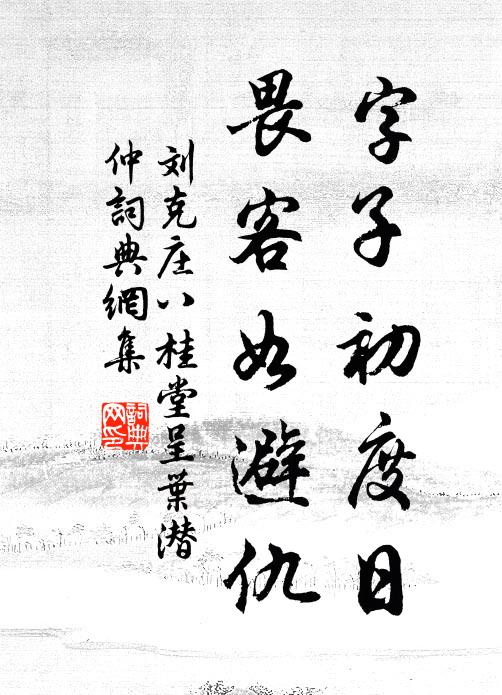 字子初度日
畏客如避仇
刘克庄八桂堂呈葉潜
仲詞典網集
詞典
网印